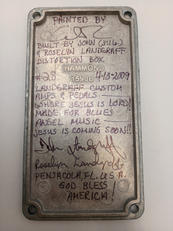 PAINTED BY
BUILT BY JOHN (JML)
& ROSELYN LANDGRAFF
DISTORTION BOX
HAMMOND
4-13-2009
LANDGRAFF CUSTOM
AMPS & PEDALS
WHERE JESUS IS LORD!
MADE FOR BLUES
ANGEL MUSIC
JESUS IS COMING SOON!!
Roselyn Landgraff
PENSACOLA, FL. U.S.A.
GOD BLESS
AMERICA!